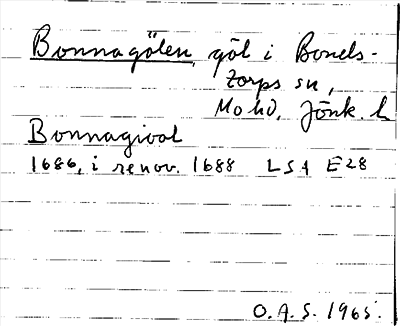 Bonnagölen, göl i Bonds-
torps sn,
Mo hd, Jönk. l
Bonnagiool
1686, i renov. 1688 LSA E28
O.A.S. 1965.